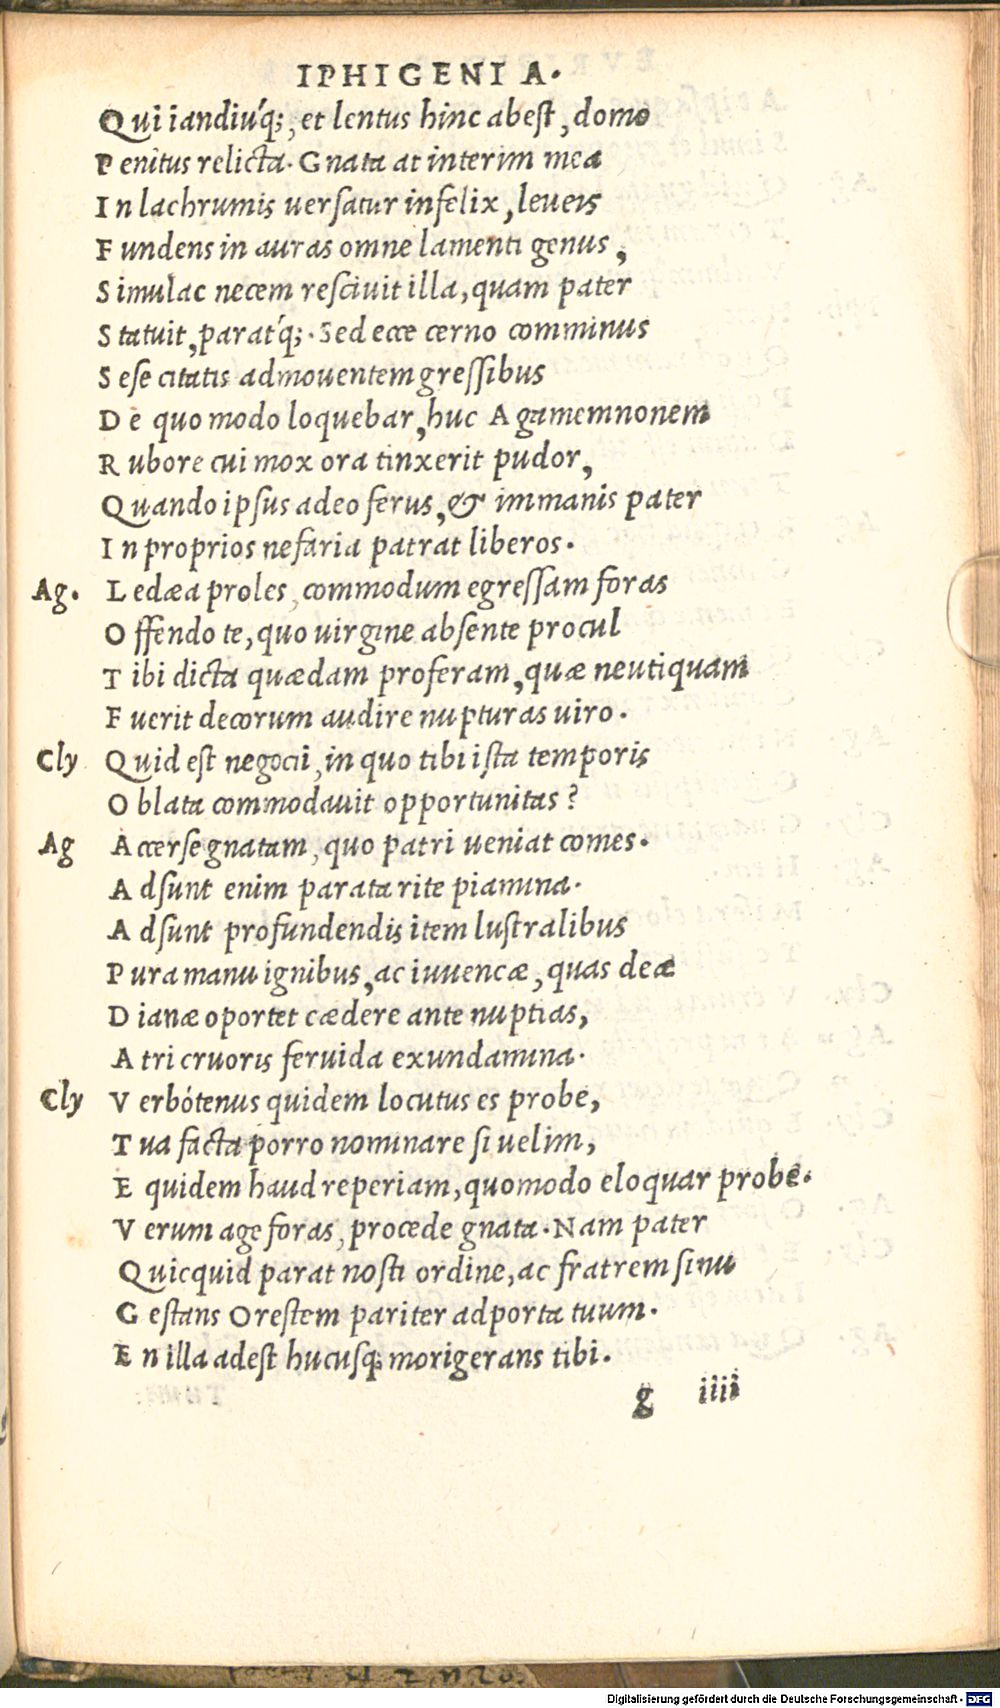 IPHIGENIA.
Qui iandiu'q;, et lentus hinc abest, domo
Penitus relicta. Gnata at interim mea
In lachrumis uersatur infelix, leueis
Fundens in auras omne lamenti genus,
Simulac necem resciuit illa, quam pater
Statuit, parat'q;. Sed ecce cerno comminus
Sese citatis admouentem gressibus
De quo modo loquebar, huc Agamemnonem
Rubore cui mox ora tinxerit pudor,
Quando ipsus adeo ferus, & immanis pater
In proprios nefaria patrat liberos.
Ag. Ledæa proles, commodum egressam foras
Offendo te, quo uirgine absente procul
Tibi dicta quædam proferam, quæ neutiquam
Fuerit decorum audire nupturas uiro.
Cly Quid est negocii, in quo tibi ista temporis
Oblata commodauit opportunitas?
Ag Accerse gnatam, quo patri ueniat comes.
Adsunt enim parata rite piamina.
Adsunt profundendis item lustralibus
Pura manu ignibus, ac iuuencæ, quas deæ
Dianæ oportet cædere ante nuptias,
Atri cruoris feruida exundamina.
Cly Verbótenus quidem locutus es probe,
Tua facta porro nominare si uelim,
Equidem haud reperiam, quomodo eloquar probe.
Verum age foras, procede gnata. Nam pater
Quicquid parat nosti ordine, ac fratrem sinu
Gestans Orestem pariter adporta tuum.
En illa adest hucusq; morigerans tibi.
g iiii
Digitalisierung gefördert durch die Deutsche Forschungsgemeinschaft - DFG